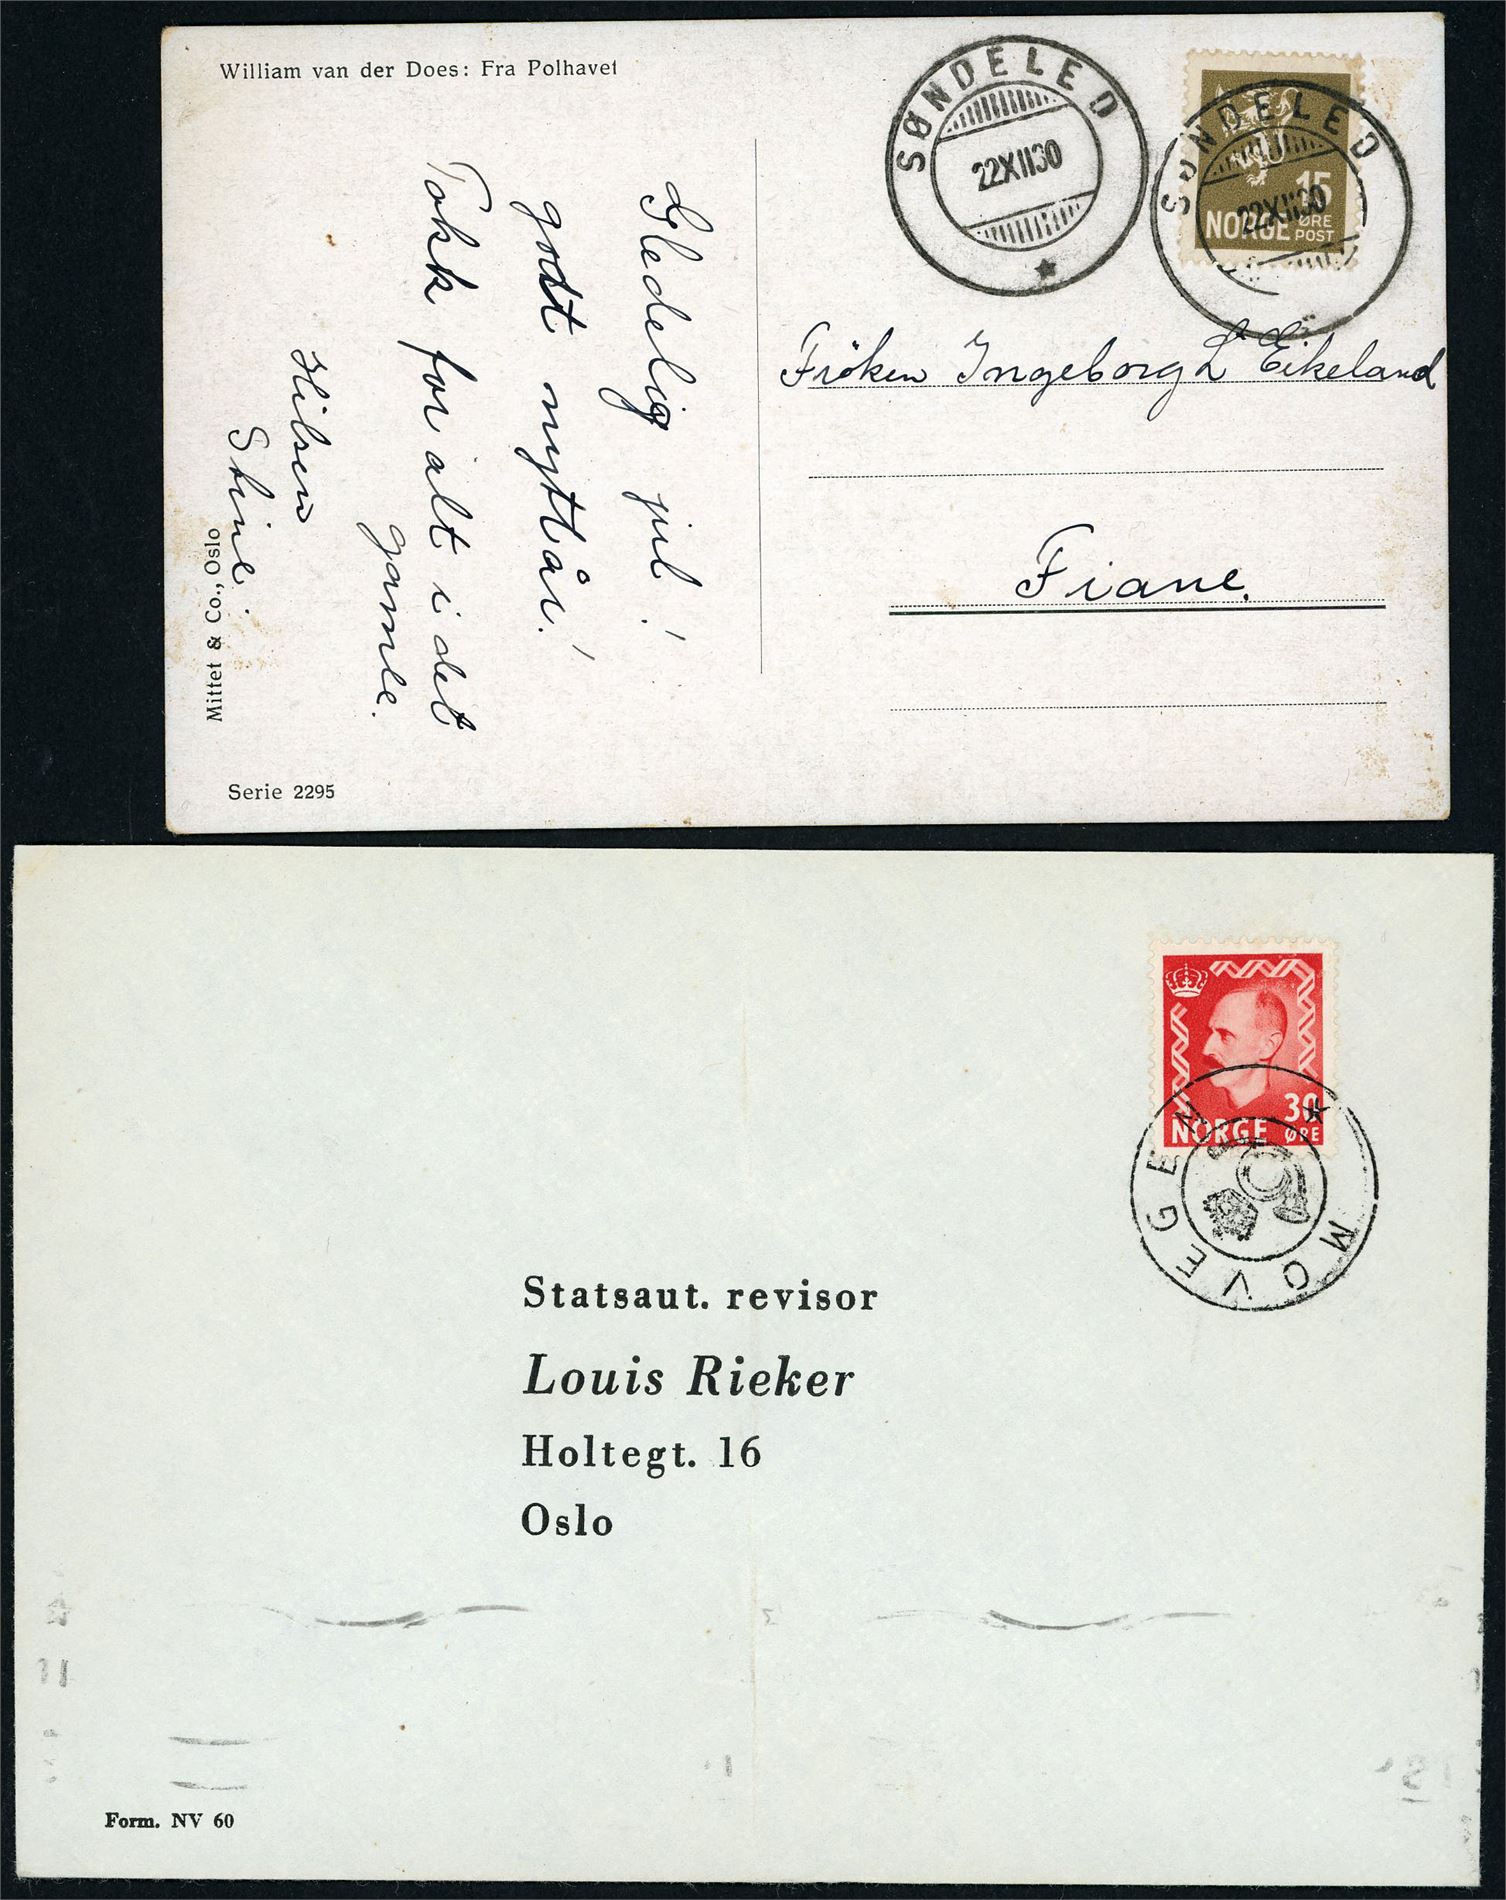 William van der Does: Fra Polhavet
SØNDELED
22XII30
SØNDELED
22XII30
15
NORGE ØRE
POST
Gledelig jul!
godt nyttår!
Takk for alt i det
gamle.
Hilsen
Stine.
Frøken Ingeborg L Eikeland
Fiane.
Mittet & Co., Oslo
Serie 2295
30
NORGE ØRE
MOVEGEN
Statsaut. revisor
Louis Rieker
Holtegt. 16
Oslo
Form. NV 60